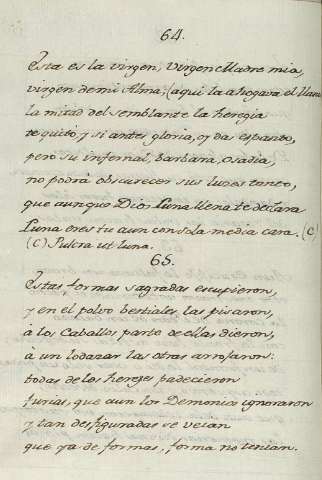 64.
Esta es la virgen, Virgen Madre mia,
virgen de mi Alma; (aqui la ahogava el llan
la mitad del semblante la heregia
te quitò, y si antes gloria, oy das espanto,
pero su infernal, barbara, osadia,
no podrà obscurecer sus luzes tanto,
que aunque Dios Luna llena te declara
Luna eres tu aun con sola media cara. (C)
(C) Pulcra ut luna.
65.
Estas formas sagradas escupieron,
y en el polvo bestiales las pisaron,
à los Caballos parte de ellas dieron,
à un lodazar las otras arrojaron:
todas de los hereges padecieron
furias, que aun los Demonios ignoraron
y tan desfiguradas se veian
que ya de formas, forma no tenian.